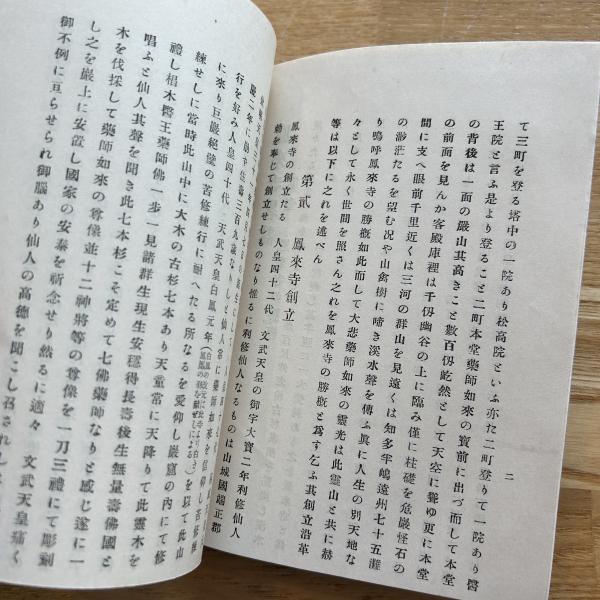 二
て三町を登る塔中の一院あり松高院といふ亦た二町登りて一院あり醫
王院と言ふ是より登ること二町本堂藥師如來の寶前に出づ而して本堂
の背後は一面の嚴山其高きこと數百仭屹然として天空に聳ゆ更に本堂
の前面を見んか客殿庫裡は千仭幽谷の上に臨み僅に柱礎を危巖怪石の
間に支へ眼前千里近くは三河の群山を見遠くは知多半嶋遠州七十五灘
の渺茫たるを望む况や山禽樹に啼き溪水聲を傳ふ眞に人生の別天地な
り嗚呼鳳來寺の勝槪如此而して大悲藥師如來の靈光は此靈山と共に赫
々として永く世間を照さん之れを鳳來寺の勝槪と爲す乞ふ其創立沿革
等は以下に之れを述べん
第貳 鳳來寺創立
鳳來寺の創立たる 人皇四十二代 文武天皇の御宇大寶二年利修仙人
勅を奉じて創立せしものなり惟るに利修仙人なるものは山城國
行を好み人皇四十代 天武天皇白鳳元年
に來り巨巖絕壁の苦修練行に耐へたる所なるを愛仰し巖窟の內にて修
練せしに當時此山中に大木の古杉七本あり天童常に天降りて此靈木を
禮し椙木醫王藥師佛一步一見諸群生現生安穩得長壽後生無量壽佛國と
唱ふと仙人其聲を聞き此七本杉こそ定めて七佛藥師なりと感じ遂に一
木を伐採して藥師如來の尊像並十二神將等の尊像を一刀三禮にて彫刻
し之を巖上に安置し國家の安泰を祈念せり然るに適々 文武天皇痛く
御不例に亘らせられ御腦あり仙人の高德を聞こし召され